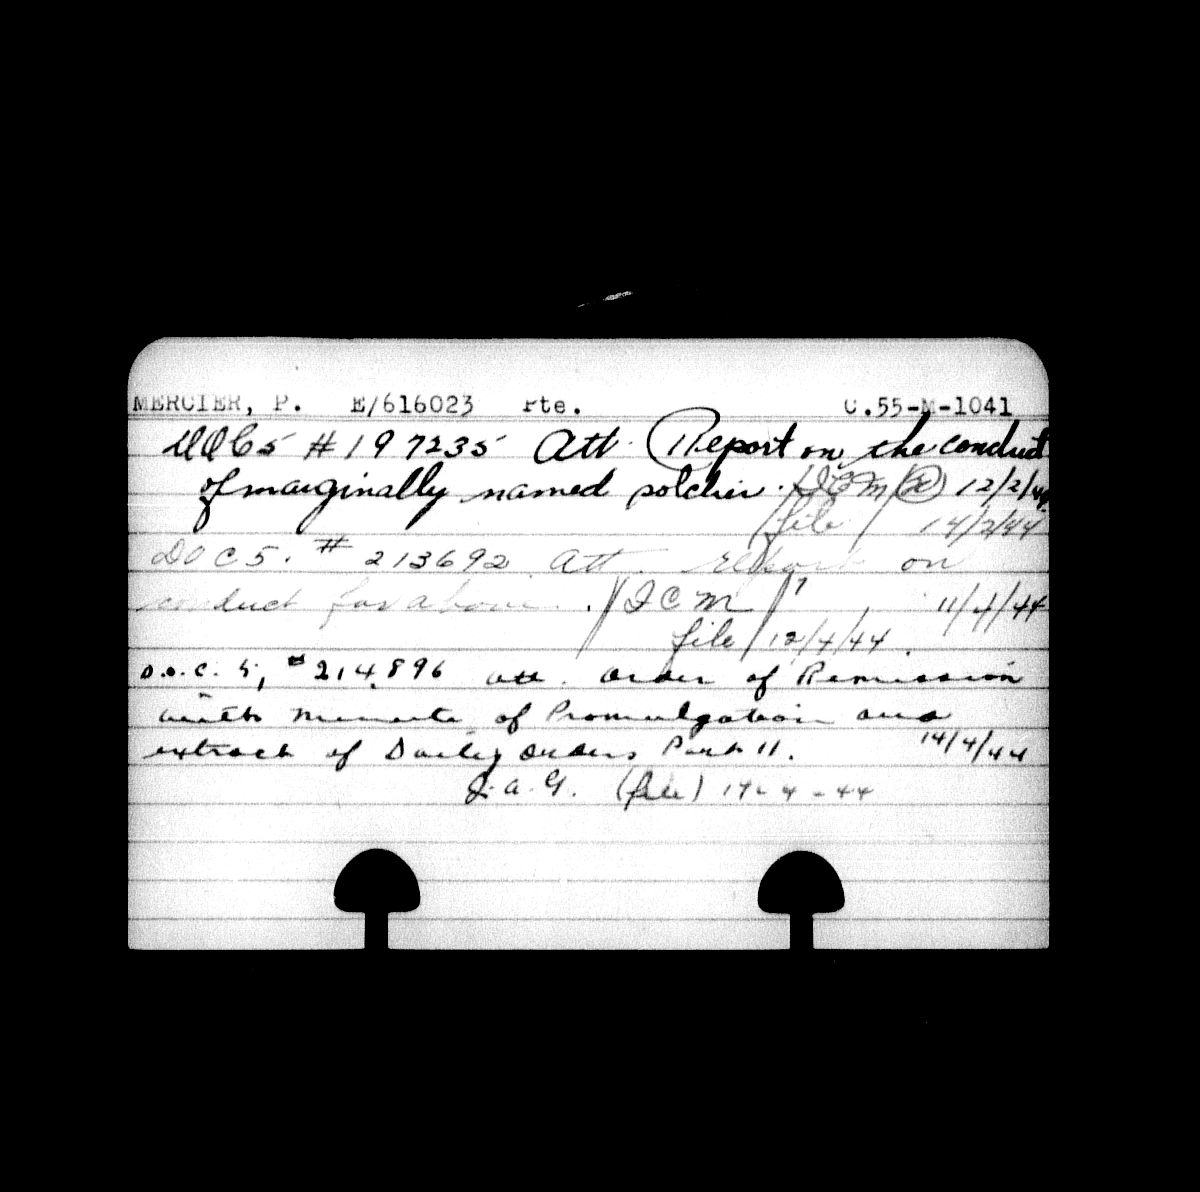 MERCIER, P. E/616023 Pte. C.55-M-1041
DOC5 #197235 Att. Report on the conduct
of marginally named soldier. 12/2/44
file 14/2/44
DOC5. # 213692 Att. report on
conduct for above. JCM 11/4/44
file 12/4/44
D.O.C. 5, # 214,896 att. Order of Remission
with Minute of Promulgation and
extract of Daily Orders Part II. 14/4/44
J.A.G. (file) 19-4-44